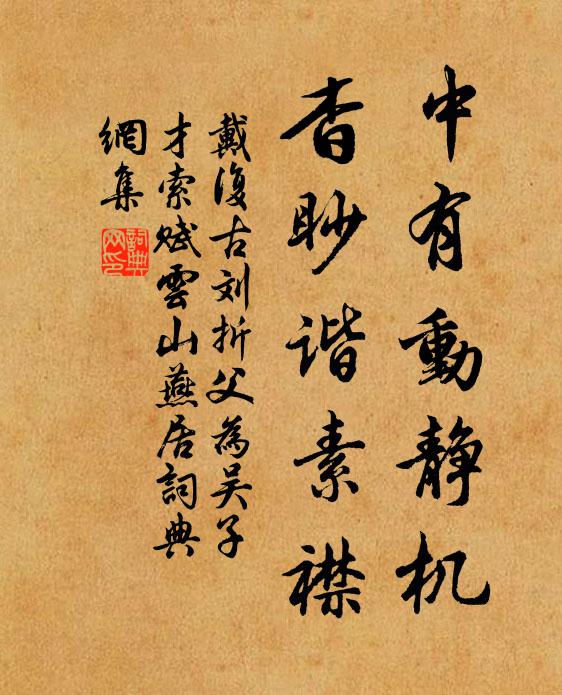 中有動静机
杳眇谐素襟
戴復古刘折父為吴子
才索赋雲山燕居詞典
網集
詞典
网印